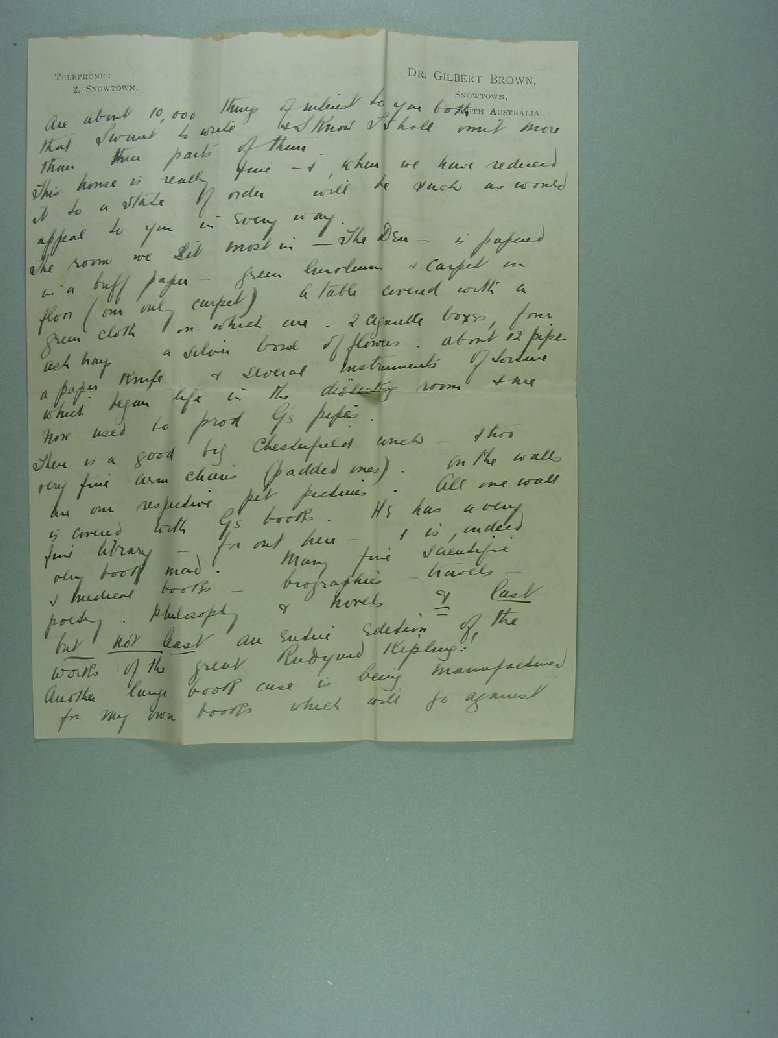 TELEPHONE:
2, SNOWTOWN.
DR. GILBERT BROWN,
SNOWTOWN,
SOUTH AUSTRALIA
Are about 10,000 things of interest to you both
that I want to write & I know I shall omit more
than three parts of them.
This house is really fine – & when we have reduced
it to a state of order will be such as would
appeal to you in every way.
The room we sit most in – The Den – is papered
in a buff paper – green linoleum & carpet on
floor (our only carpet) a table covered with a
green cloth on which are. 2 cigarette boxes, four
ash trays a silver bowl of flowers. about 12 pipes
a paper knife & several instruments of torture
which began life in the dissecting room & are
now used to prod Gs pipes.
There is a good big Chesterfield couch – & two
very fine arm chairs (padded ones). On the walls
are our respective pet pictures. All one wall
is covered with Gs books. He has a very
fine library – for out here – & is, indeed
very book mad. Many fine scientific
& medical books – biographies – travels –
poetry. Philosophy & novels & last
but not least an Entire Edition of the
works of the great Rudyard Kipling.
Another large book case is being manufactured
for my own books which will go against